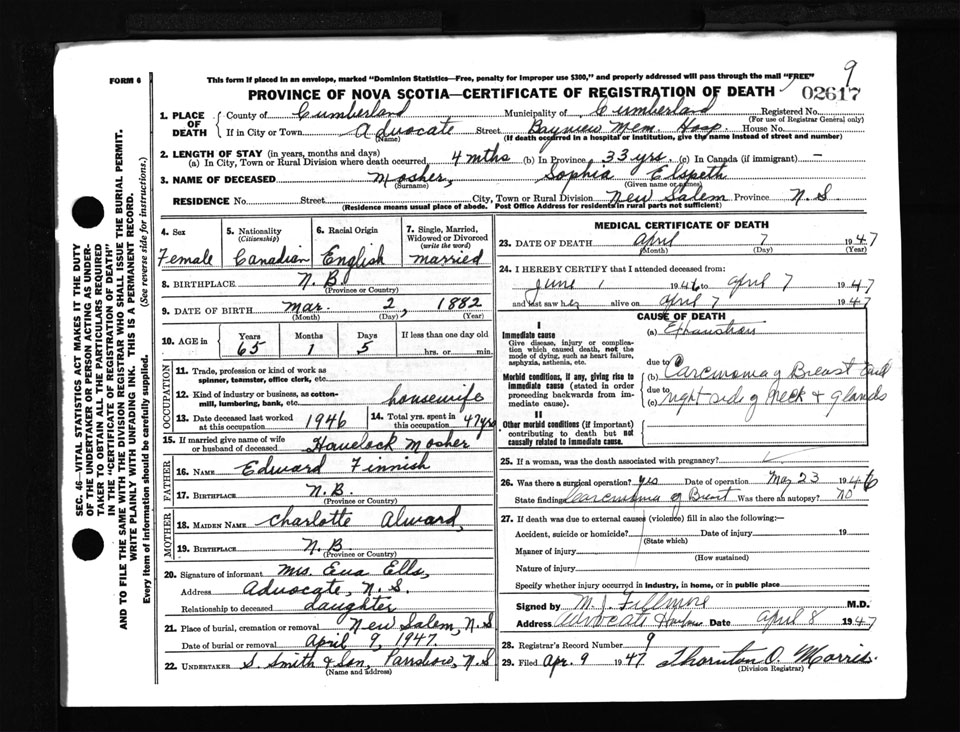 FORM 6
This form if placed in an envelope, marked "Dominion Statistics—Free, penalty for improper use $300," and properly addressed will pass through the mail "FREE"
9
PROVINCE OF NOVA SCOTIA—CERTIFICATE OF REGISTRATION OF DEATH
02617
1. PLACE OF DEATH
County of Cumberland Municipality of Cumberland Registered No.
(For use of Registrar General only)
If in City or Town Advocate Street Bayview Mem. Hosp. House No.
(Name) (If death occurred in a hospital or institution, give the name instead of street and number)
2. LENGTH OF STAY (in years, months and days)
(a) In City, Town or Rural Division where death occurred, 4 mths (b) In Province, 33 yrs. (c) In Canada (if immigrant) —
3. NAME OF DECEASED Mosher, Sophia Elspeth
(Surname) (Given name or names)
RESIDENCE No. Street City, Town or Rural Division New Salem Province N.S
(Residence means usual place of abode. Post Office Address for residents in rural parts not sufficient)
4. Sex
Female
5. Nationality
(Citizenship)
Canadian
6. Racial Origin
English
7. Single, Married, Widowed or Divorced
(write the word)
married
8. BIRTHPLACE N.B.
(Province or Country)
9. DATE OF BIRTH Mar. 2, 1882
(Month) (Day) (Year)
10. AGE in Years Months Days If less than one day old
65 1 5 hrs. or min.
OCCUPATION
11. Trade, profession or kind of work as
spinner, teamster, office clerk, etc.
12. Kind of industry or business, as cotton-
mill, lumbering, bank, etc. housewife
13. Date deceased last worked
at this occupation 1946
14. Total yrs. spent in
this occupation 47 yrs
15. If married give name of wife
or husband of deceased Havelock Mosher
FATHER
16. NAME Edward Finnish
17. BIRTHPLACE N.B.
(Province or Country)
MOTHER
18. MAIDEN NAME Charlotte Alward,
19. BIRTHPLACE N.B
(Province or Country)
20. Signature of informant Mrs. Eva Ells,
Address Advocate, N.S.
Relationship to deceased daughter
21. Place of burial, cremation or removal New Salem, N.S
Date of burial or removal April 9, 1947.
22. UNDERTAKER S. Smith & Son, Parrsboro, N.S
(Name and address)
MEDICAL CERTIFICATE OF DEATH
23. DATE OF DEATH April 7 1947
(Month) (Day) (Year)
24. I HEREBY CERTIFY that I attended deceased from:
June 1 1946 to April 7 1947
and last saw her alive on April 7 1947
CAUSE OF DEATH
I
Immediate cause
Give disease, injury or complication which caused death, not the mode of dying, such as heart failure, asphyxia, asthenia, etc.
(a) Exhaustion
due to
Morbid conditions, if any, giving rise to immediate cause (stated in order proceeding backwards from immediate cause).
(b) Carcinoma of Breast and
due to
(c) right side of neck & glands
II
Other morbid conditions (if important) contributing to death but not causally related to immediate cause.
25. If a woman, was the death associated with pregnancy?
26. Was there a surgical operation? yes Date of operation May 23 1946
State finding Carcinoma of Breast Was there an autopsy? no
27. If death was due to external causes (violence) fill in also the following:—
Accident, suicide or homicide? Date of injury 19
(State which)
Manner of injury
(How sustained)
Nature of injury
Specify whether injury occurred in industry, in home, or in public place
Signed by M. J. Fillmore M.D.
Address Advocate Harbour Date April 8 1947
28. Registrar's Record Number 9
29. Filed Apr. 9 1947 Thornton O. Morris.
(Division Registrar)
SEC. 46—VITAL STATISTICS ACT MAKES IT THE DUTY
OF THE UNDERTAKER OR PERSON ACTING AS UNDER-
TAKER TO OBTAIN ALL THE PARTICULARS REQUIRED
IN THE "CERTIFICATE OF REGISTRATION OF DEATH"
AND TO FILE THE SAME WITH THE DIVISION REGISTRAR WHO SHALL ISSUE THE BURIAL PERMIT.
WRITE PLAINLY WITH UNFADING INK. THIS IS A PERMANENT RECORD.
Every item of information should be carefully supplied. (See reverse side for instructions.)